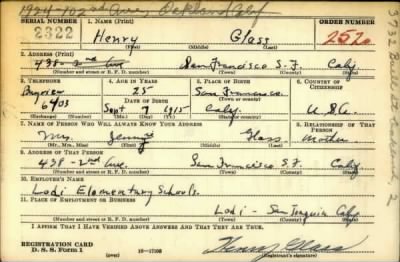 1924-102nd Ave, Oakland Calif
SERIAL NUMBER 1. NAME (Print) ORDER NUMBER
2322 Henry Glass 2520
(First) (Middle) (Last)
2. ADDRESS (Print)
438-2nd Ave San Francisco S.F. Calif
(Number and street or R. F. D. number) (Town) (County) (State)
3. TELEPHONE 4. AGE IN YEARS 5. PLACE OF BIRTH 6. COUNTRY OF CITIZENSHIP
Bayview 25 San Francisco
6403 DATE OF BIRTH (Town or county)
Sept 7 1915 Calif. U.S.A.
(Exchange) (Number) (Mo.) (Day) (Yr.) (State or country)
7. NAME OF PERSON WHO WILL ALWAYS KNOW YOUR ADDRESS 8. RELATIONSHIP OF THAT PERSON
Mrs. Jenny Glass Mother
(Mr., Mrs., Miss) (First) (Middle) (Last)
9. ADDRESS OF THAT PERSON
438-2nd Ave. San Francisco S.F. Calif
(Number and street or R. F. D. number) (Town) (County) (State)
10. EMPLOYER'S NAME
Lodi Elementary Schools.
11. PLACE OF EMPLOYMENT OR BUSINESS
Lodi - San Joaquin Calif
(Number and street or R. F. D. number) (Town) (County) (State)
I AFFIRM THAT I HAVE VERIFIED ABOVE ANSWERS AND THAT THEY ARE TRUE.
REGISTRATION CARD
D. S. S. Form 1 (over) 16-17105 Henry Glass
(Registrant's signature)